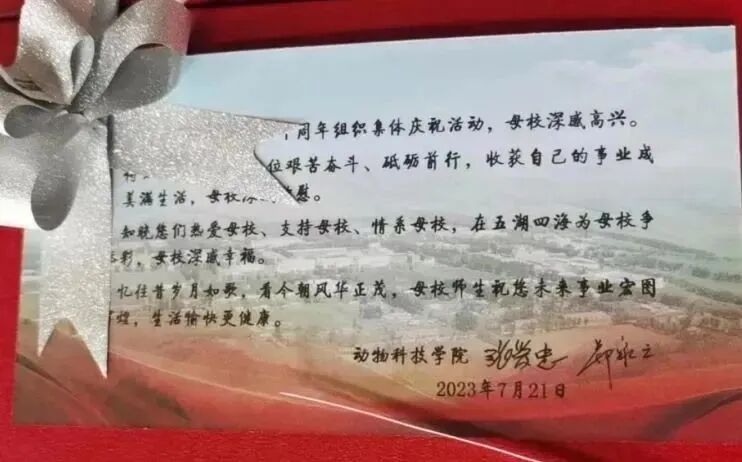 周年组织集体庆祝活动，母校深感高兴。
位艰苦奋斗、砥砺前行，收获自己的事业成
美满生活，母校深
慰。
知晓您们热爱母校、支持母校、情系母校，在五湖四海为母校争
彩，母校深感幸福。
忆往昔岁月如歌，看今朝风华正茂，母校师生祝您未来事业宏图
煌，生活愉快更健康。
动物科技学院
2023年7月21日